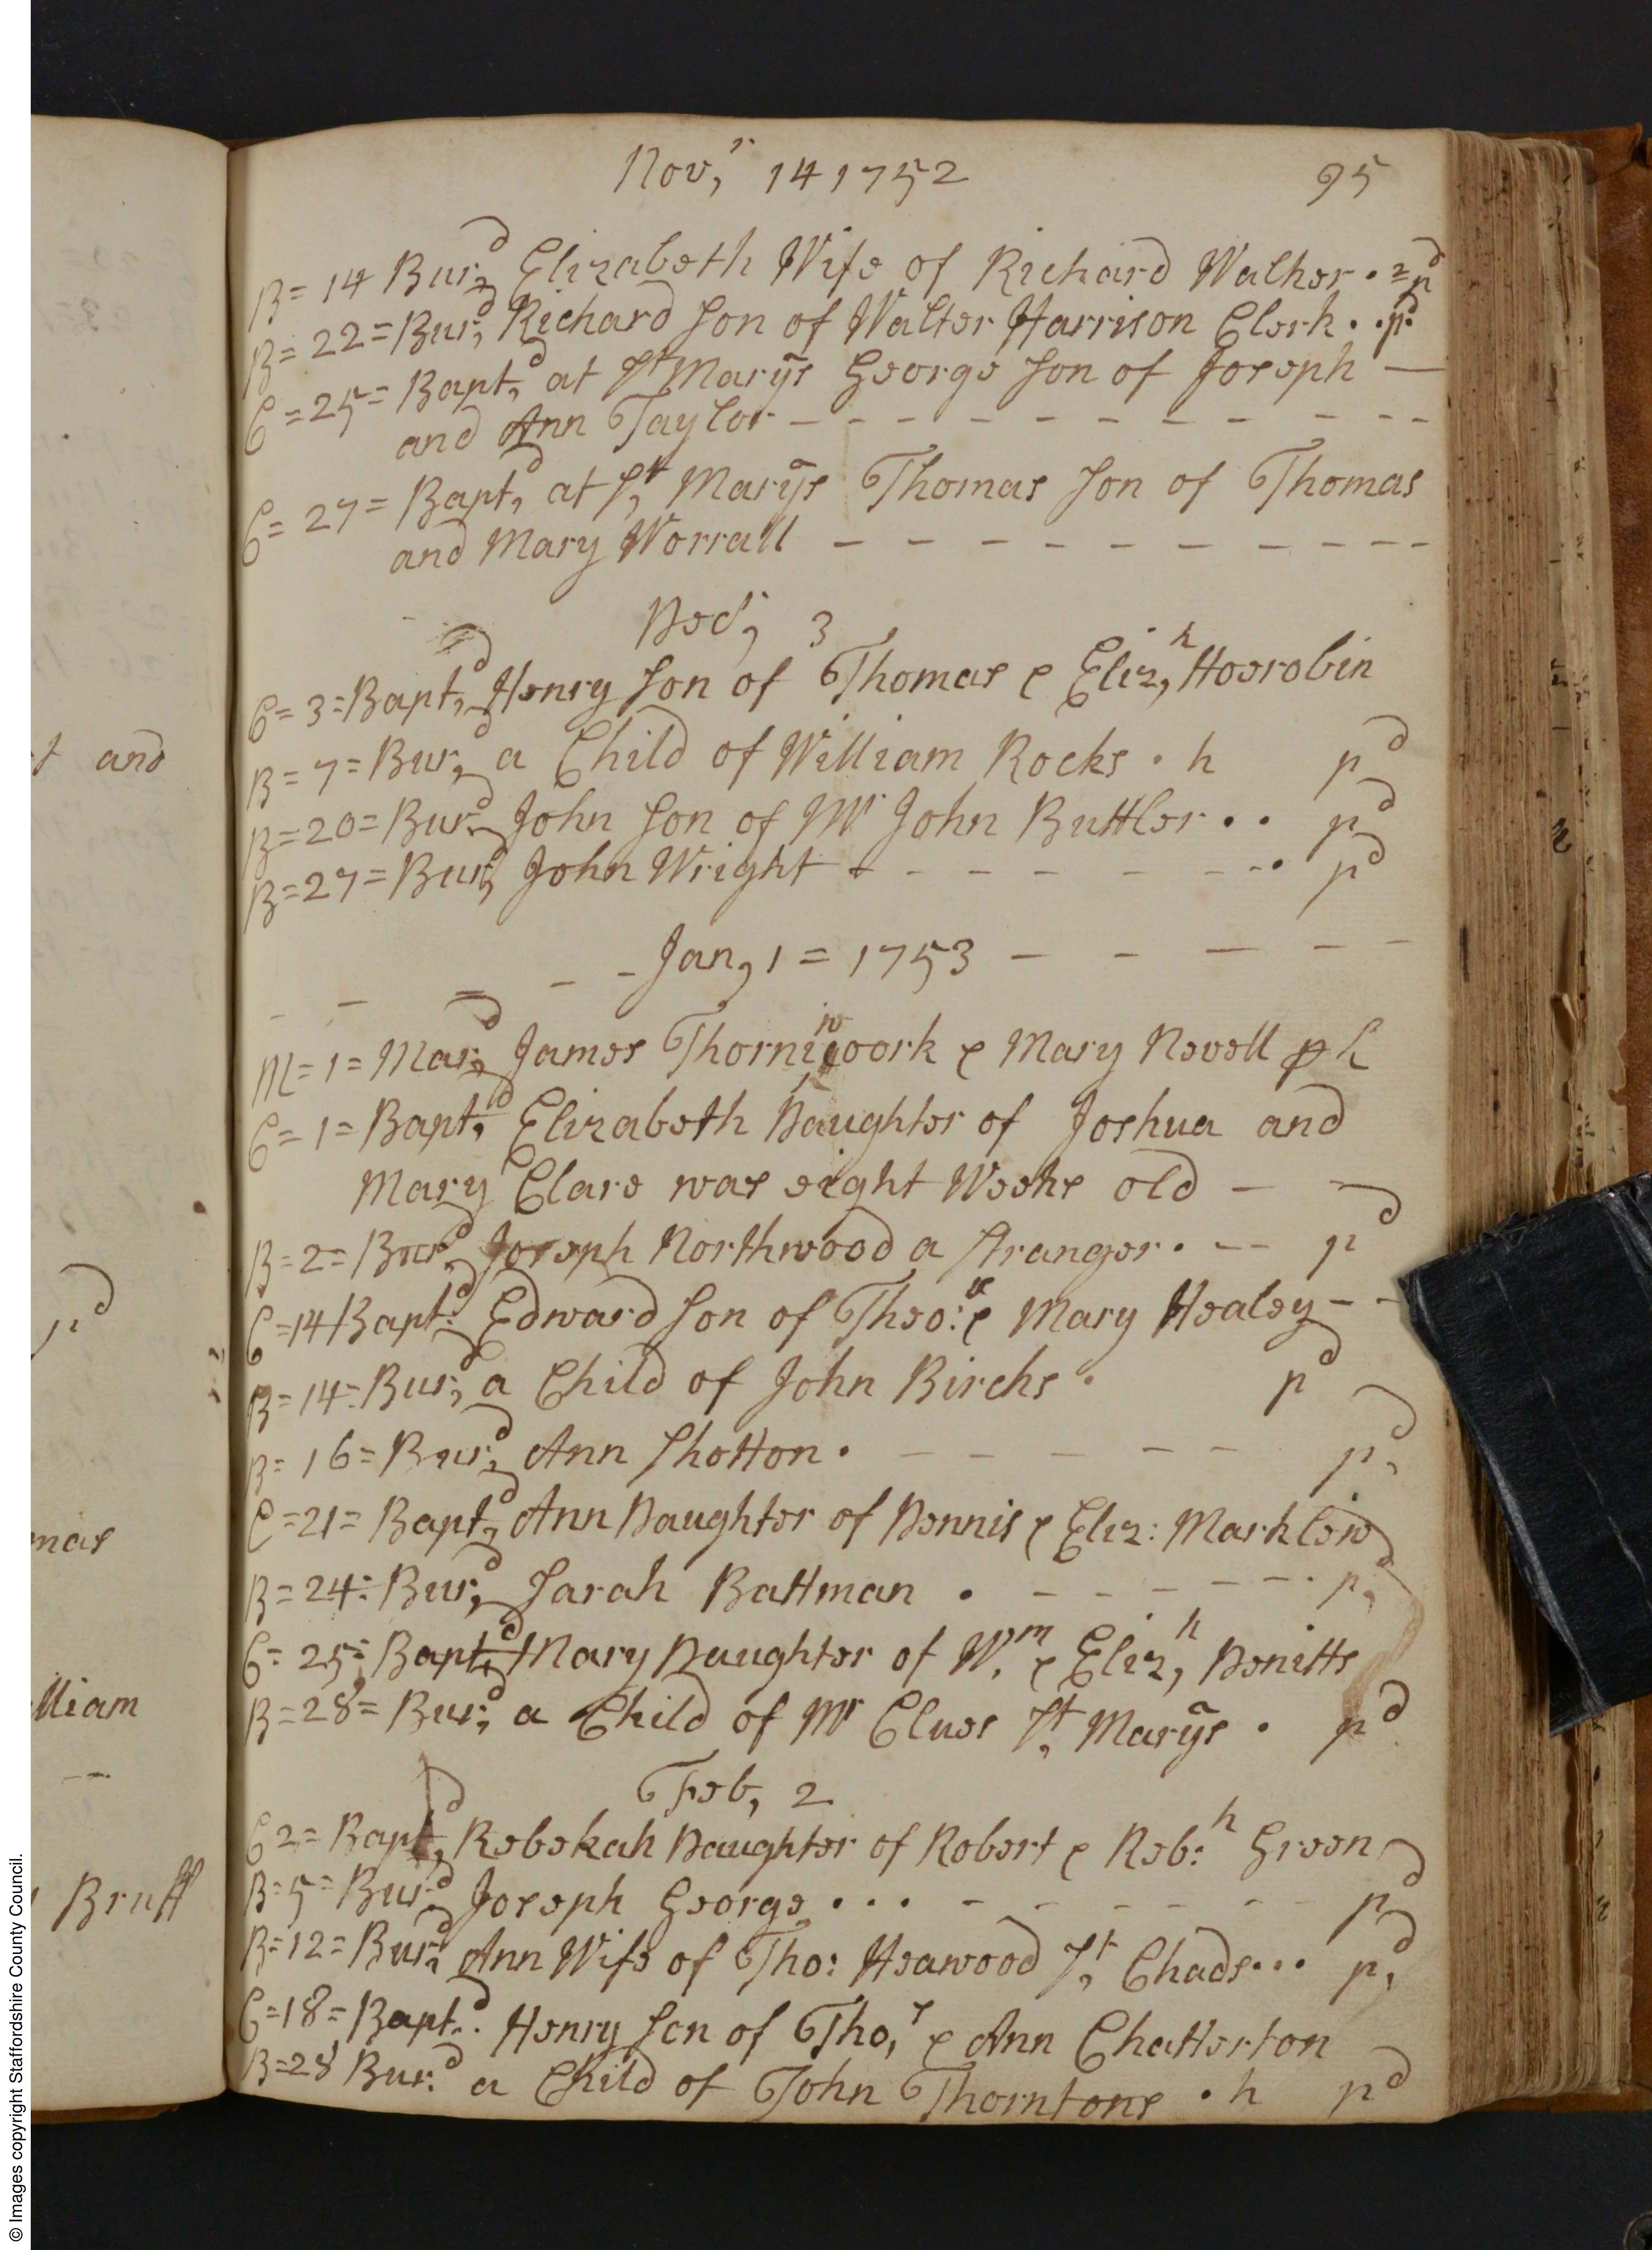 Nov,r 14 1752 95
B= 14 Bur,d Elizabeth Wife of Richard Walker . = pd
B= 22= Bur,d Richard Son of Walter Harrison Clerk . . pd
C= 25= Bapt,d at St Marys George Son of Joseph —
and Ann Taylor - - - - - - - - - - -
C= 27= Bapt,d at S,t Marys Thomas Son of Thomas
and Mary Worrall - - - - - - - - - - -
Decr, 3
C= 3= Bapt,d Henry Son of Thomas & Eliz,h Hoerobin
t and
B= 7= Bur,d a Child of William Rocks . h pd
B= 20= Bur,d John Son of Mr John Buttler . . pd
B= 27= Bur,d John Wright - - - - - - - . pd
- - = - - Jan, 1 = 1753 - - - - -
M= 1= Mar,d James Thorniwork & Mary Nevell p L
C= 1= Bapt,d Elizabeth Daughter of Joshua and
Mary Clare was eight Weeks old -
B= 2= Bur,d Joseph Northwood a Stranger . - - pd
pd
C= 14 Bapt,d Edward Son of Theo: & Mary Healey - -
B= 14= Bur,d a Child of John Birchs . pd
B= 16= Bur,d Ann Shotton . - - - - - pd,
C= 21= Bapt,d Ann Daughter of Dennis & Eliz: Marklew
mas
B= 24= Bur,d Sarah Battman . - - - - - - . pd,
C= 25= Bapt,d Mary Daughter of W.m & Eliz,h Denitts
lliam
B= 28= Bur,d a Child of Mr Clues St, Marys . pd
Feb, 2
C 2= Bapt,d Rebekah Daughter of Robert & Reb:h Green
Bruff
B= 5= Bur,d Joseph George . . . - - - - - - pd
B= 12= Bur,d Ann Wife of Tho: Heawood St, Chads . . . pd,
C= 18= Bapt.d Henry Son of Tho,s & Ann Chatterton
B= 28 Bur:d a Child of John Thorntons . h pd
© Images copyright Staffordshire County Council.